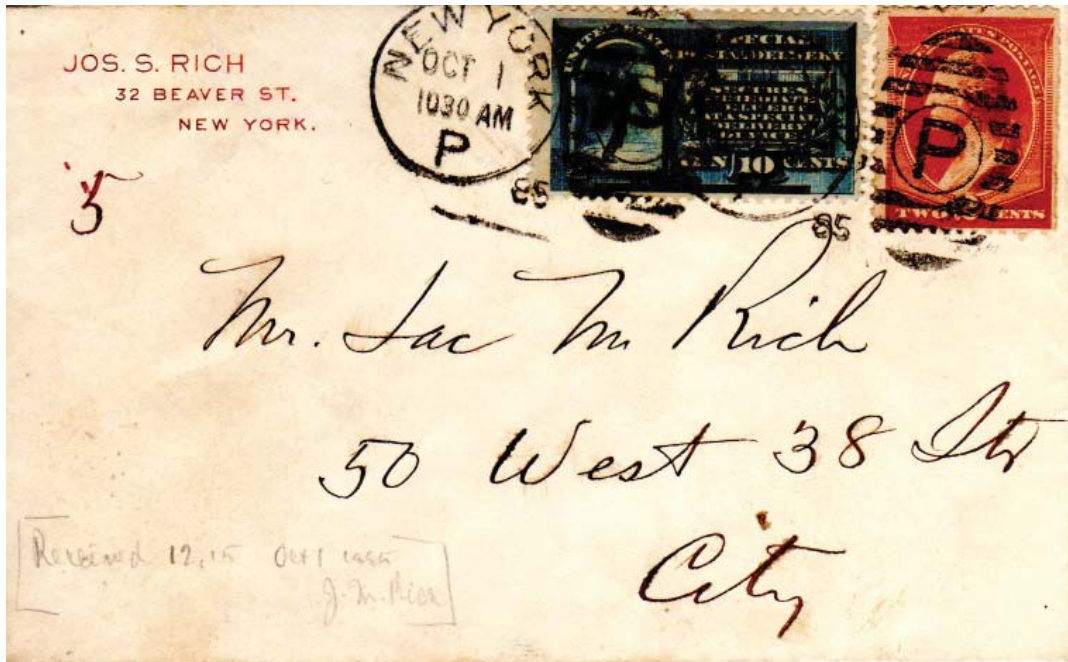 JOS. S. RICH
32 BEAVER ST.
NEW YORK.
5
NEW YORK
OCT 1
1030 AM
P
85
UNITED STATES
SPECIAL
POSTAL DELIVERY
SECURES
IMMEDIATE
DELIVERY
AT A SPECIAL
DELIVERY
OFFICE
TEN 10 CENTS
85
UNITED STATES POSTAGE
P
TWO 2 CENTS
Mr. Isac M Rich
50 West 38 Str
City
Received 12,15 Oct 1 1885
J. M. Rich